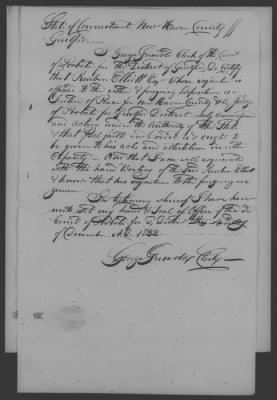 State of Connecticut New Haven County ss
Guilford
I George Griswold Clerk of the Court
of Probate for the District of Guilford Do Certify
that Reuben Elliott Esqr whose signature is
affixed to the within & foregoing deposition is a
Justice of Peace for New Haven County & Judge
of Probate for Guilford District duly
and acting under the authority of this State
& that full faith and Credit is & ought to
be given to his acts and attestation in
Capacity — Also that I am well acquainted
with the hand writing of the said Reuben Elliott
& know that his signature to the foregoing is
genuine
In testimony whereof I have here
unto set my hand & Seal of Office of the
Court of Probate for District
of December A.D. 1832
George Griswold Clerk